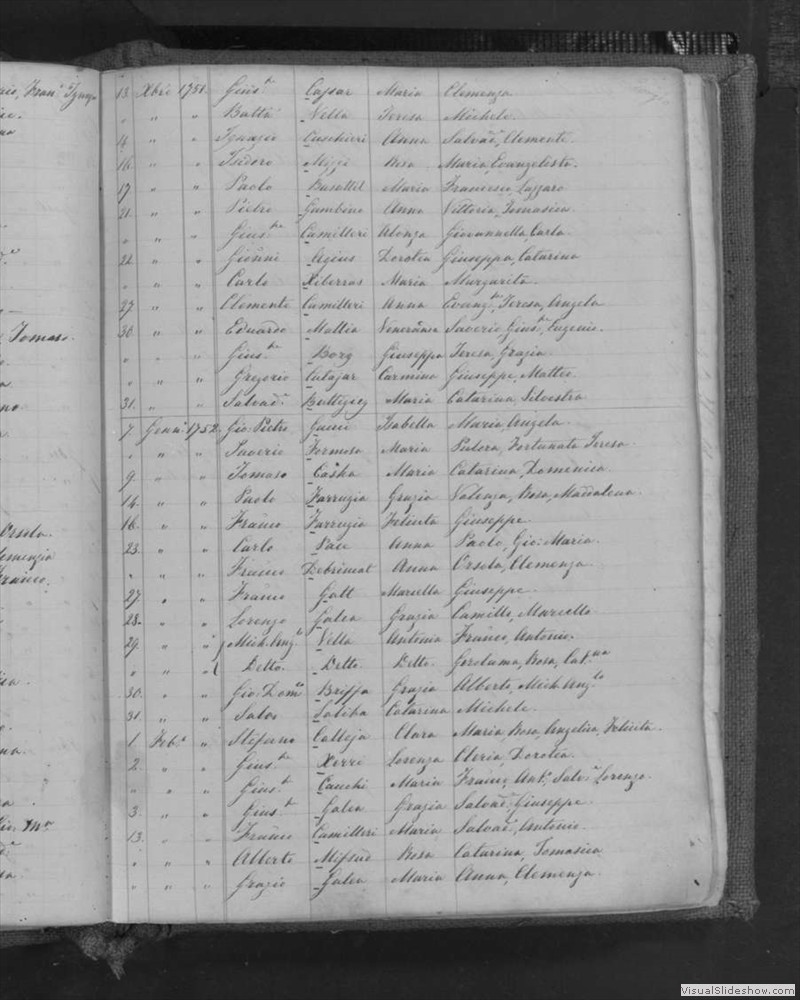 13. Xbri 1751. Gius.e Cassar Maria Clemenza
" " " Batta Vella Teresa Michele.
14 " " Ignazio Cuschieri Anna Salvad. Clemente.
16. " " Isidoro Mizzi Rosa Maria, Evangelista.
17 " " Paolo Busuttil Maria Francesco, Lazzaro
21. " " Pietro Gambino Anna Vittoria, Tomasica.
" " " Gius.e Camilleri Alonza Giovannella, Carla
22. " " Gionni Agius Dorotea Giuseppa, Catarina
" " " Carlo Xiberras Maria Margarita.
27. " " Clemente Camilleri Anna Teresa, Angela
30. " " Eduardo Mattia Veneranda Saverio, Gius.e, Eugenio.
" " " Gius.e Borg Giuseppa Teresa, Grazia.
" " " Gregorio Cutajar Carmina Giuseppe, Matteo.
31. " " Salvad. Buttigieg Maria Catarina, Silvestra
7. Genn. 1752. Gio: Pietro Gauci Isabella Maria Angela
" " " Saverio Formosa Maria Fortunata Teresa.
9. " " Tomaso Casha Maria Catarina, Domenica.
14. " " Paolo Farrugia Grazia Valenza, Rosa, Maddalena.
16. " " Franco Farrugia Felicita Giuseppe.
23. " " Carlo Pace Anna Paolo, Gio: Maria.
" " " Franco Debrincat Anna Orsola, Clemenza.
27. " " Franco Gatt Mariella Giuseppe.
28. " " Lorenzo Galea Grazia Camillo, Marcello
29. " " Mich. Ang.o Vella Antonia Franco, Antonio.
" " " Detto. Detto Detto. Gerolama, Rosa, Cat.na
30. " " Gio: Dom.co Briffa Grazia Alberto, Mich. Ang.lo
31. " " Salvo Saliba Catarina Michele.
1. Feb.o " Stefano Calleja Clara Maria Rosa, Angelica, Felicita.
2. " " Gius.e Xerri Lorenza Cleria, Dorotea.
" " " Gius.e Cauchi Maria Franco, Ant.o, Salv. Lorenzo.
3. " " Gius.e Galea Grazia Salvad. Giuseppe.
13. " " Franco Camilleri Maria Salvad. Antonio.
" " " Alberto Mifsud Rosa Catarina, Tomasica
" " " Grazio Galea Maria Anna, Clemenza.
VisualSlideshow.com